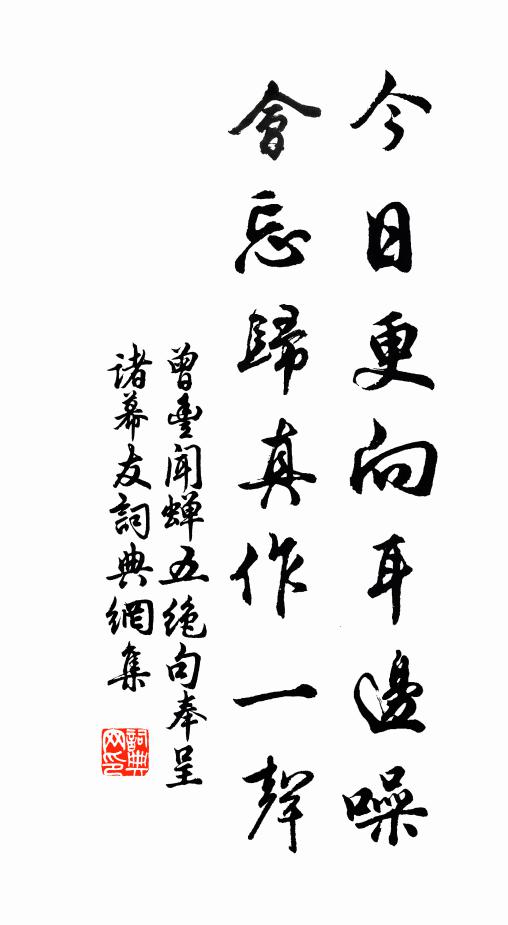 今日更向耳邊噪
會忘歸真作一聲
曾豐聞蟬五絶句奉呈
諸幕友詞典網集
詞典
网印